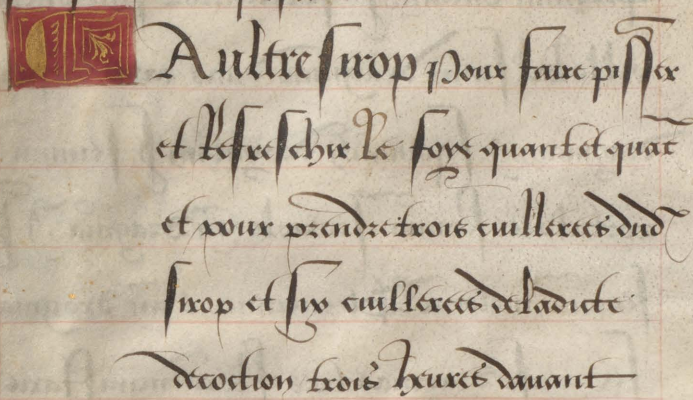 Aultre sirop pour faire pisser
et Refreschir Le foye quant et quāt
et pour prendre trois cuillerees dud
sirop et six cuillerees de ladicte
decoction trois heures davant